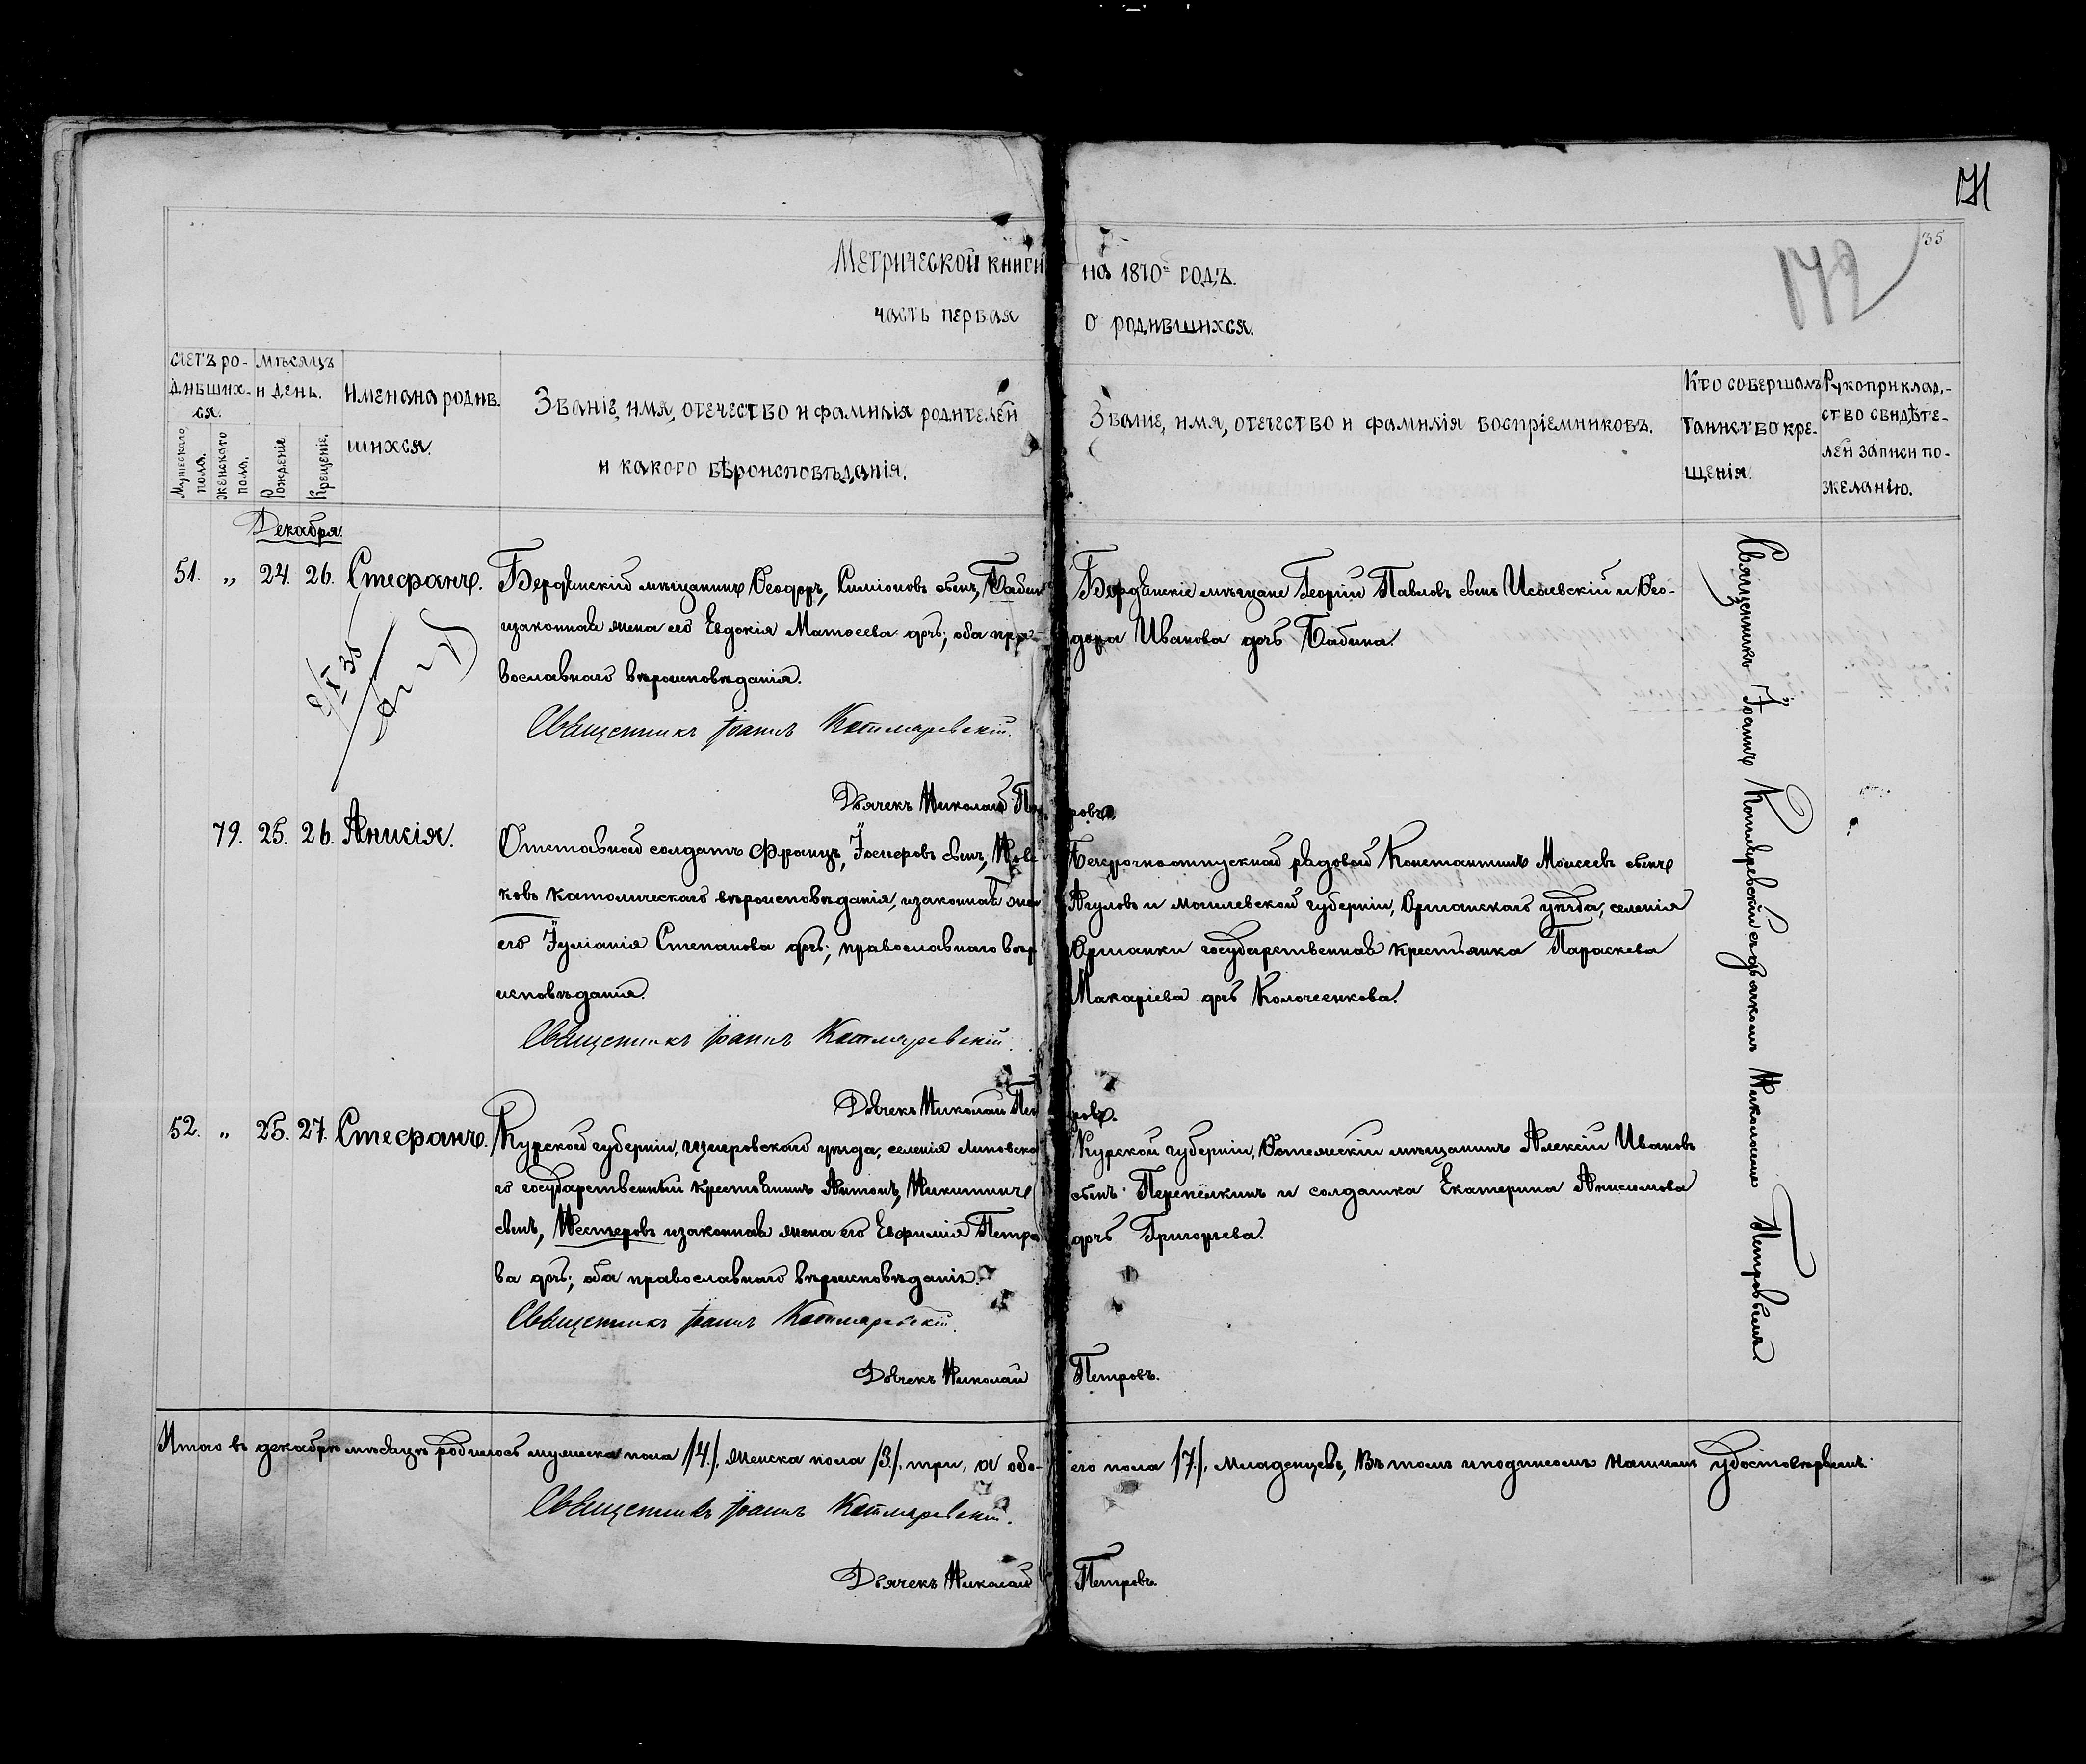 171
35
172
Метрической книги на 1870й годъ.
часть первая о родившихся.
счетъ ро-
дивших-
ся.
Мужескаго пола.
женскаго пола.
мѣсяцъ
и день.
Рожденіе
Крещеніе.
Имена родив-
шихся.
Званіе, имя, отечество и фамилія родителей
и какого вѣроисповѣданія.
Званіе, имя, отечество и фамилія воспріемниковъ.
Кто совершалъ
таинство кре-
щенія.
Рукоприклад-
ство свидѣте-
лей записи по-
желанію.
Декабря.
51. „ 24. 26. Стефанъ.
Бердянскій мѣщанинъ Ѳеодоръ, Симіоновъ сынъ, Бабин
изаконная жена его Евдокія Матѳеева дочь; оба пра-
вославнаго вѣроисповѣданія.
Священникъ Іоаннъ Котляревскій.
Дьячекъ Николай Петровъ.
Бердянскіе мѣщане Георгій Павловъ сынъ Исаевскій и Ѳео-
дора Иванова дочь Бабина.
79. 25. 26. Анисія.
Отставной солдатъ Францъ, Іосифовъ сынъ, Нов
ковъ католическаго вѣроисповѣданія, изаконная жен
его Іуліанія Степанова дочь; православнаго вѣр
исповѣданія.
Священникъ Іоаннъ Котляревскій.
Дьячекъ Николай Петровъ.
Безсрочноотпускной рядовой Константинъ Моисеевъ сынъ
Агуловъ и могилевской губерніи, Оршанскаго уѣзда, селенія
Оршанки государственная крестьянка Параскева
Макаріева дочь Колочеенкова.
52. „ 25. 27. Стефанъ.
Курской губерніи, щигровского уѣзда, селенія Липовско
го государственный крестьянинъ Антонъ, Никитинъ
сынъ, Нестеровъ изаконная жена его Евфимія Петро
ва дочь; оба православнаго вѣроисповѣданія.
Священникъ Іоаннъ Котляревскій.
Дьячекъ Николай Петровъ.
Курской губерніи, мѣщанинъ Алексій Ивановъ
сынъ Перепёлкинъ и солдатка Екатерина Анисимова
дочь Григорьева.
Священникъ Іоаннъ Котляревскій съ дьячкомъ Николаемъ Петровымъ.
Итого въ декабрѣ мѣсяцѣ родилось мужеска пола /4./, женска пола /3./, три, а обо- его пола /7./, младенцевъ, Въ томъ иподписомъ нашимъ удостовѣряемъ.
Священникъ Іоаннъ Котляревскій.
Дьячекъ Николай Петровъ.